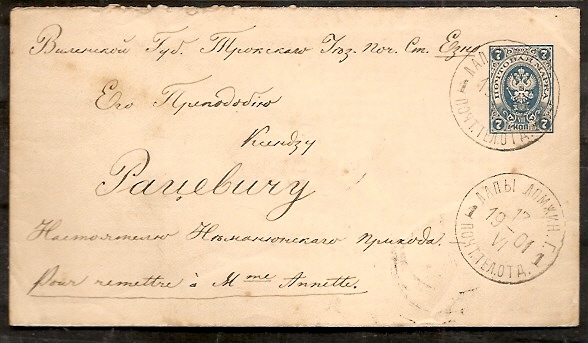 Виленской Губ. Трокскаго Уѣз. Поч. Ст. Езно
7 ПОЧТОВАЯ МАРКА 7
7 КОП. 7
ЛАПЫ
ПОЧТ. ТЕЛ. ОТД.
Его Преподобію
Ксендзу
Рацевичу
ЛАПЫ ЛОМЖИН. Г.
19 17 01
VI
ПОЧТ. ТЕЛ. ОТД. 1
Настоятелю Нѣманюнскаго Прихода.
Pour remettre à Mme Annette.